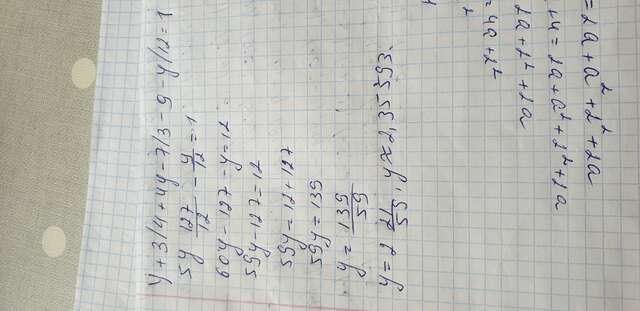 y+3/4+4y-7/3-9-y/12=1
5y 127/12 - y/12 = 1
60y-127-y=12
59y-127=12
59y=12+127
59y=139
y = 139/59
y = 2 21/59, y≈2,35593.
=2a+a²+2²+2a
+4=2a+a²+2²+2a
2a+2²+2a
=4a+2²